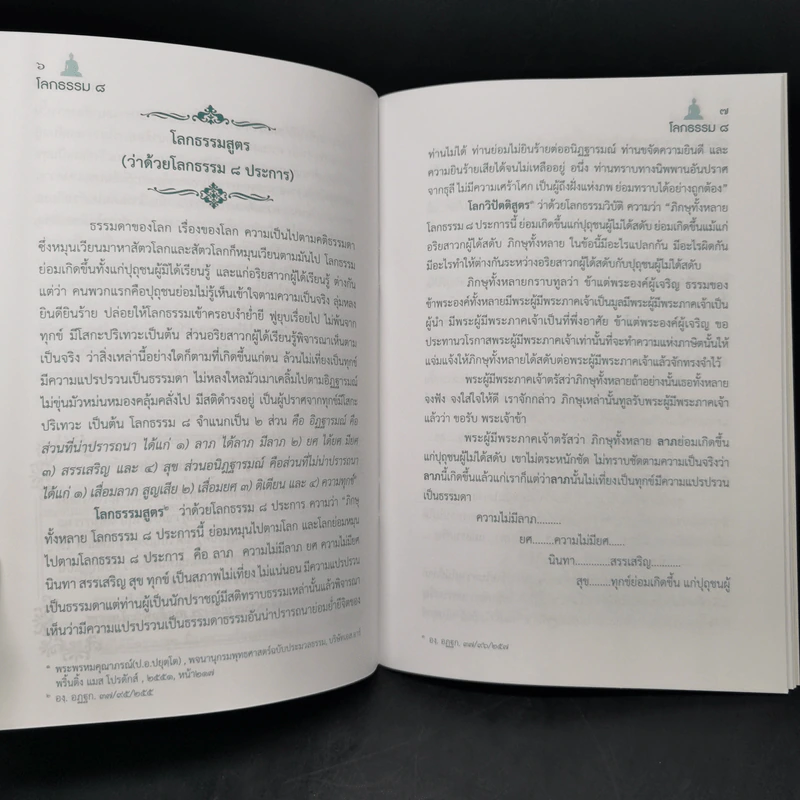 ๖
โลกธรรม ๘
โลกธรรมสูตร
(ว่าด้วยโลกธรรม ๘ ประการ)
ธรรมดาของโลก เรื่องของโลก ความเป็นไปตามคติธรรมดา
ซึ่งหมุนเวียนมาหาสัตวโลกและสัตวโลกก็หมุนเวียนตามมันไป โลกธรรม
ย่อมเกิดขึ้นทั้งแก่ปุถุชนผู้มิได้เรียนรู้ และแก่อริยสาวกผู้ได้เรียนรู้ ต่างกัน
แต่ว่า คนพวกแรกคือปุถุชนย่อมไม่รู้เห็นเข้าใจตามความเป็นจริง ลุ่มหลง
ยินดียินร้าย ปล่อยให้โลกธรรมเข้าครอบงำย่ำยี ฟูยุบเรื่อยไป ไม่พ้นจาก
ทุกข์ มีโสกะปริเทวะเป็นต้น ส่วนอริยสาวกผู้ได้เรียนรู้พิจารณาเห็นตาม
เป็นจริง ว่าสิ่งเหล่านี้อย่างใดก็ตามที่เกิดขึ้นแก่ตน ล้วนไม่เที่ยงเป็นทุกข์
มีความแปรปรวนเป็นธรรมดา ไม่หลงใหลมัวเมาเคลิ้มไปตามอิฏฐารมณ์
ไม่ขุ่นมัวหม่นหมองคลุ้มคลั่งไป มีสติดำรงอยู่ เป็นผู้ปราศจากทุกข์มีโสกะ
ปริเทวะ เป็นต้น โลกธรรม ๘ จำแนกเป็น ๒ ส่วน คือ อิฏฐารมณ์ คือ
ส่วนที่น่าปรารถนา ได้แก่ ๑) ลาภ ได้ลาภ มีลาภ ๒) ยศ ได้ยศ มียศ
๓) สรรเสริญ และ ๔) สุข ส่วนอนิฏฐารมณ์ คือส่วนที่ไม่น่าปรารถนา
ได้แก่ ๑) เสื่อมลาภ สูญเสีย ๒) เสื่อมยศ ๓) ติเตียน และ ๔) ความทุกข์
โลกธรรมสูตร ว่าด้วยโลกธรรม ๘ ประการ ความว่า "ภิกษุ
ทั้งหลาย โลกธรรม ๘ ประการนี้ ย่อมหมุนไปตามโลก และโลกย่อมหมุน
ไปตามโลกธรรม ๘ ประการ คือ ลาภ ความไม่มีลาภ ยศ ความไม่มียศ
นินทา สรรเสริญ สุข ทุกข์ เป็นสภาพไม่เที่ยง ไม่แน่นอน มีความแปรปรวน
เป็นธรรมดาแต่ท่านผู้เป็นนักปราชญ์มีสติทราบธรรมเหล่านั้นแล้วพิจารณา
เห็นว่ามีความแปรปรวนเป็นธรรมดาธรรมอันน่าปรารถนาย่อมย่ำยีจิตของ
พระพรหมคุณาภรณ์(ป.อ.ปยุตฺโต) , พจนานุกรมพุทธศาสตร์ฉบับประมวลธรรม, บริษัทเอส.อาร์
พริ้นติ้ง แมส โปรดักส์ , ๒๕๕๑, หน้า๒๑๗
องฺ. อฏฺฐก. ๓๗/๙๕/๒๕๕
๗
โลกธรรม ๘
ท่านไม่ได้ ท่านย่อมไม่ยินร้ายต่ออนิฏฐารมณ์ ท่านขจัดความยินดี และ
ความยินร้ายเสียได้จนไม่เหลืออยู่ อนึ่ง ท่านทราบทางนิพพานอันปราศ
จากธุลี ไม่มีความเศร้าโศก เป็นผู้ถึงฝั่งแห่งภพ ย่อมทราบได้อย่างถูกต้อง"
โลกวิปัตติสูตร ว่าด้วยโลกธรรมวิบัติ ความว่า "ภิกษุทั้งหลาย
โลกธรรม ๘ ประการนี้ ย่อมเกิดขึ้นแก่ปุถุชนผู้ไม่ได้สดับ ย่อมเกิดขึ้นแม้แก่
อริยสาวกผู้ได้สดับ ภิกษุทั้งหลาย ในข้อนี้มีอะไรแปลกกัน มีอะไรผิดกัน
มีอะไรทำให้ต่างกันระหว่างอริยสาวกผู้ได้สดับกับปุถุชนผู้ไม่ได้สดับ
ภิกษุทั้งหลายกราบทูลว่า ข้าแต่พระองค์ผู้เจริญ ธรรมของ
ข้าพระองค์ทั้งหลายมีพระผู้มีพระภาคเจ้าเป็นมูลมีพระผู้มีพระภาคเจ้าเป็น
ผู้นำ มีพระผู้มีพระภาคเจ้าเป็นที่พึ่งอาศัย ข้าแต่พระองค์ผู้เจริญ ขอ
ประทานวโรกาสพระผู้มีพระภาคเจ้าเท่านั้นที่จะทำความแห่งภาษิตนั้นให้
แจ่มแจ้งให้ภิกษุทั้งหลายได้สดับต่อพระผู้มีพระภาคเจ้าแล้วจักทรงจำไว้
พระผู้มีพระภาคเจ้าตรัสว่าภิกษุทั้งหลายถ้าอย่างนั้นเธอทั้งหลาย
จงฟัง จงใส่ใจให้ดี เราจักกล่าว ภิกษุเหล่านั้นทูลรับพระผู้มีพระภาคเจ้า
แล้วว่า ขอรับ พระเจ้าข้า
พระผู้มีพระภาคเจ้าตรัสว่า ภิกษุทั้งหลาย ลาภย่อมเกิดขึ้น
แก่ปุถุชนผู้ไม่ได้สดับ เขาไม่ตระหนักชัด ไม่ทราบชัดตามความเป็นจริงว่า
ลาภนี้เกิดขึ้นแล้วแก่เราก็แต่ว่าลาภนั้นไม่เที่ยงเป็นทุกข์มีความแปรปรวน
เป็นธรรมดา
ความไม่มีลาภ.........
ยศ........ความไม่มียศ.......
นินทา............สรรเสริญ........
สุข........ทุกข์ย่อมเกิดขึ้น แก่ปุถุชนผู้
องฺ. อฏฺฐก. ๓๗/๙๖/๒๕๗